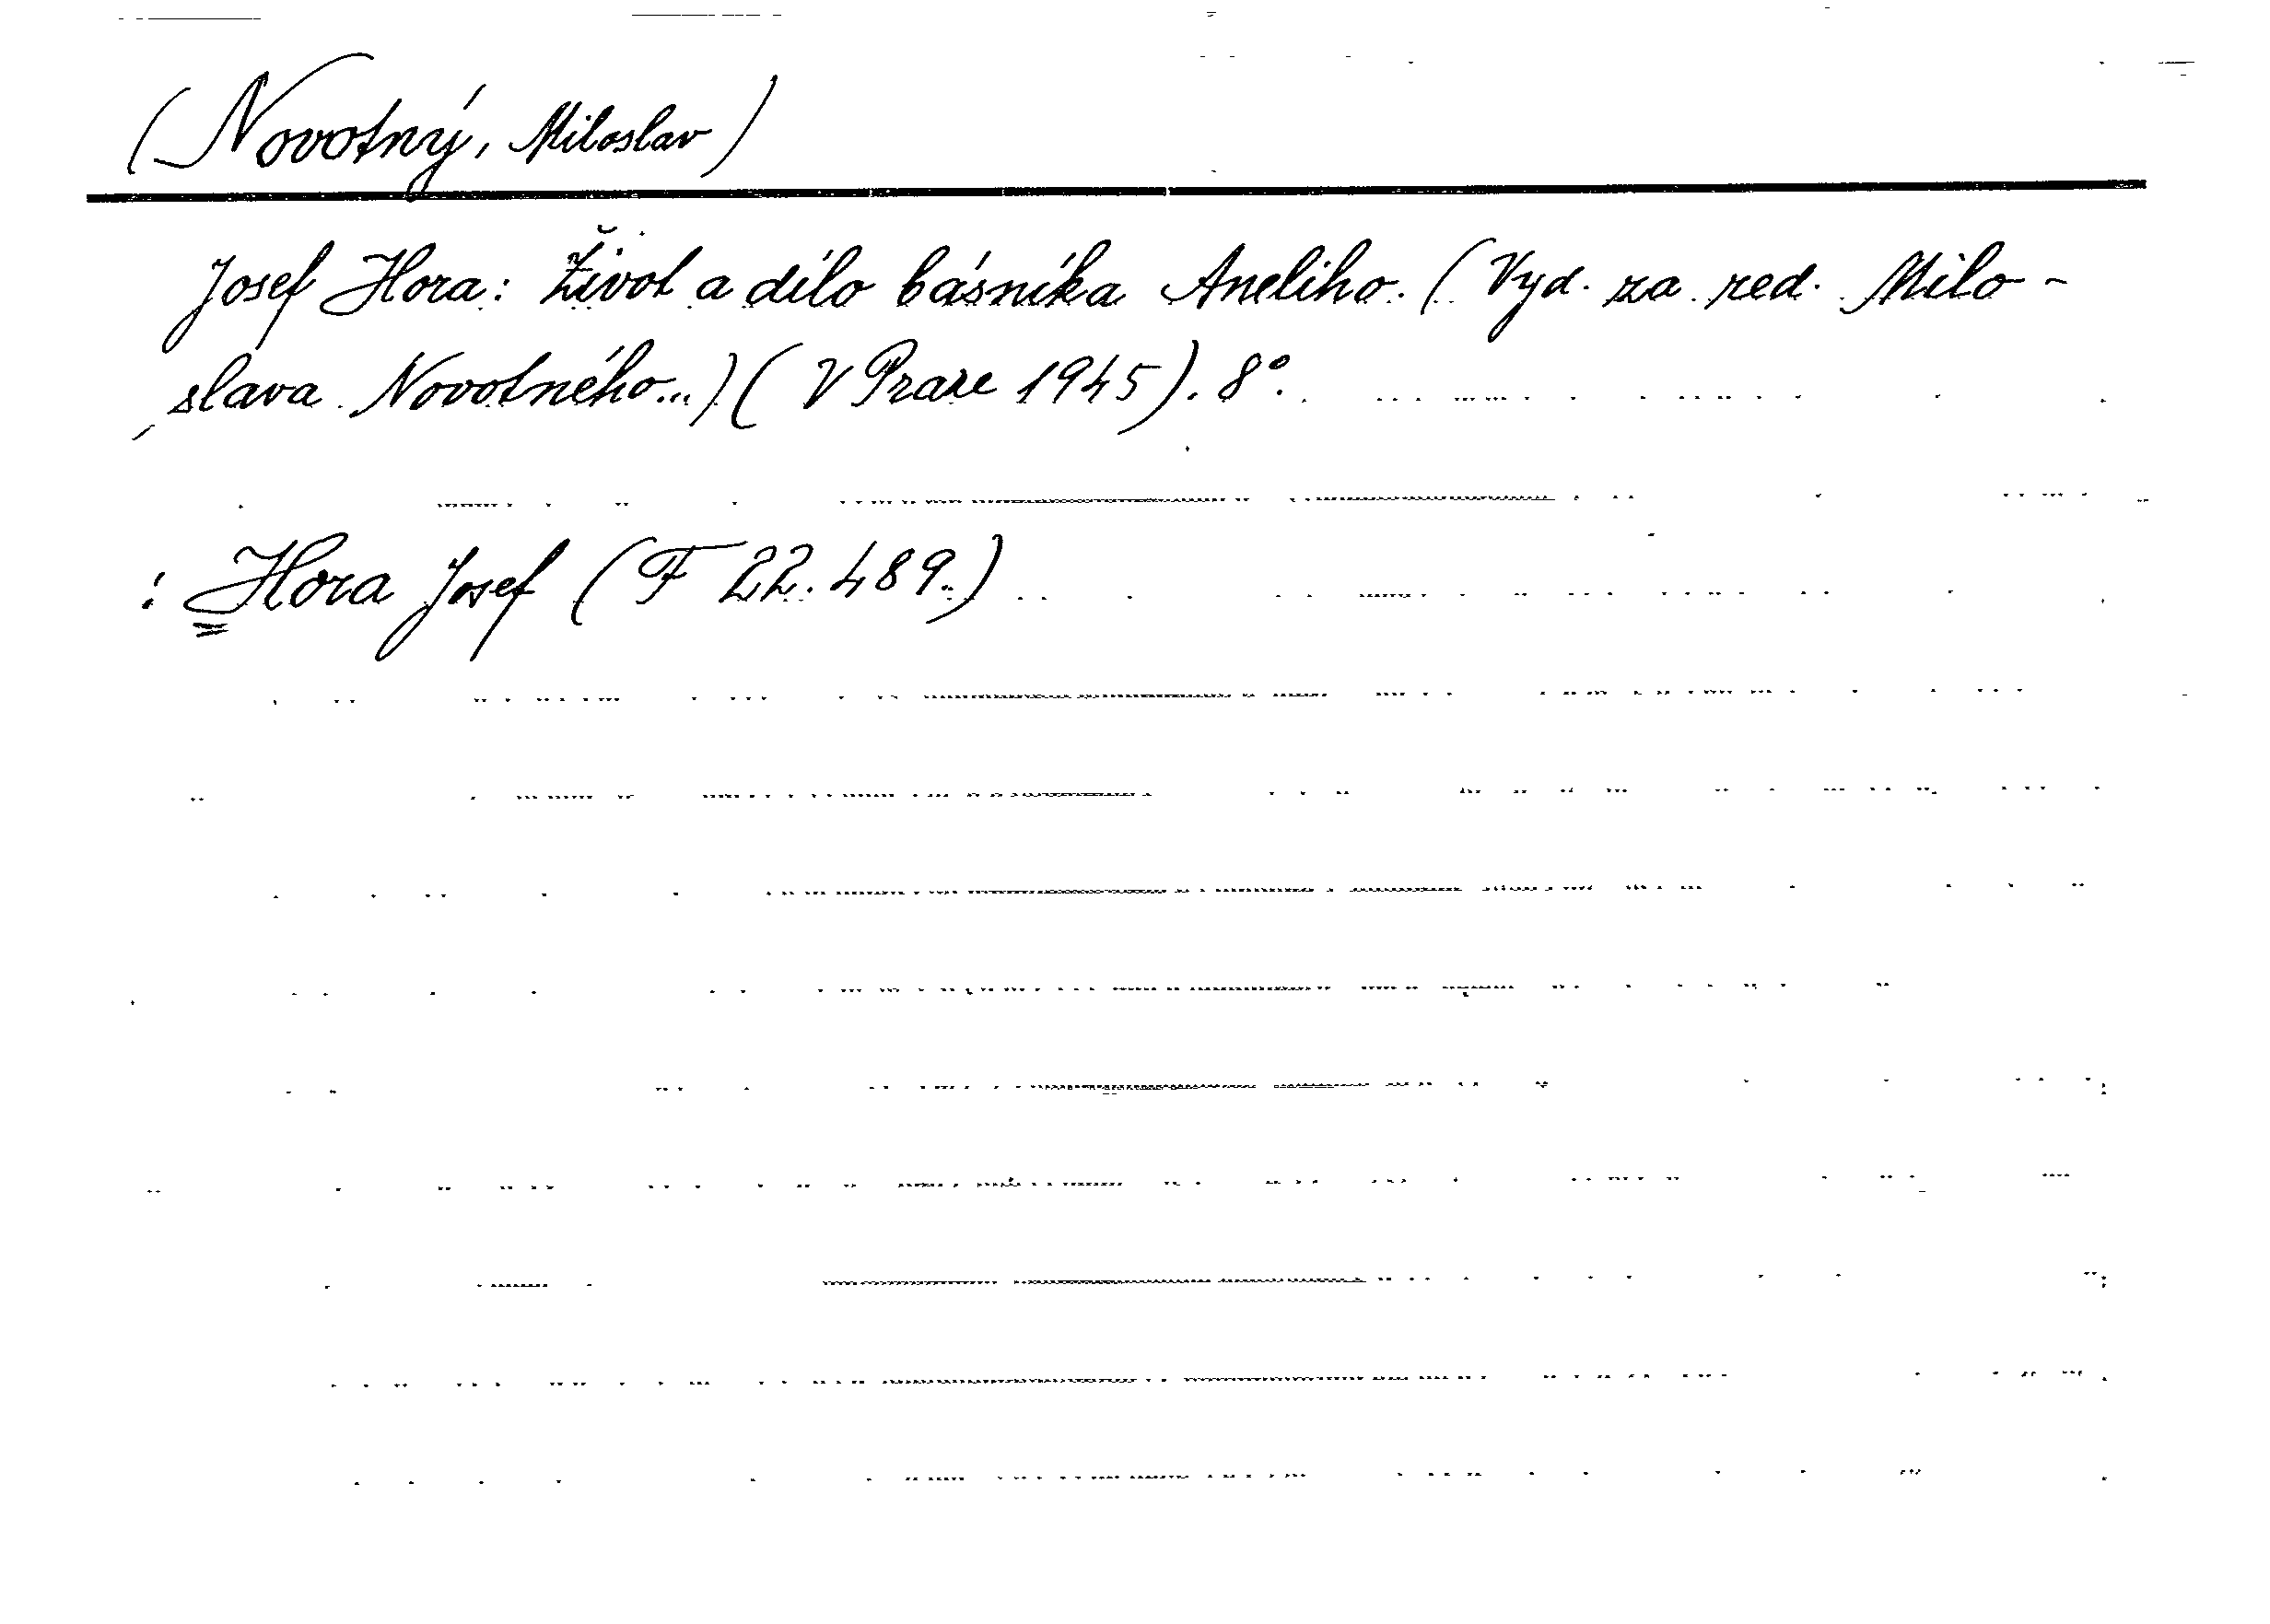 (Novotný, Miloslav)
Josef Hora: Život a dílo básníka Aneliho. (Vyd. za red. Milo-
slava Novotného...) (V Praze 1945). 8°.
: Hora Josef (F 22.489.)